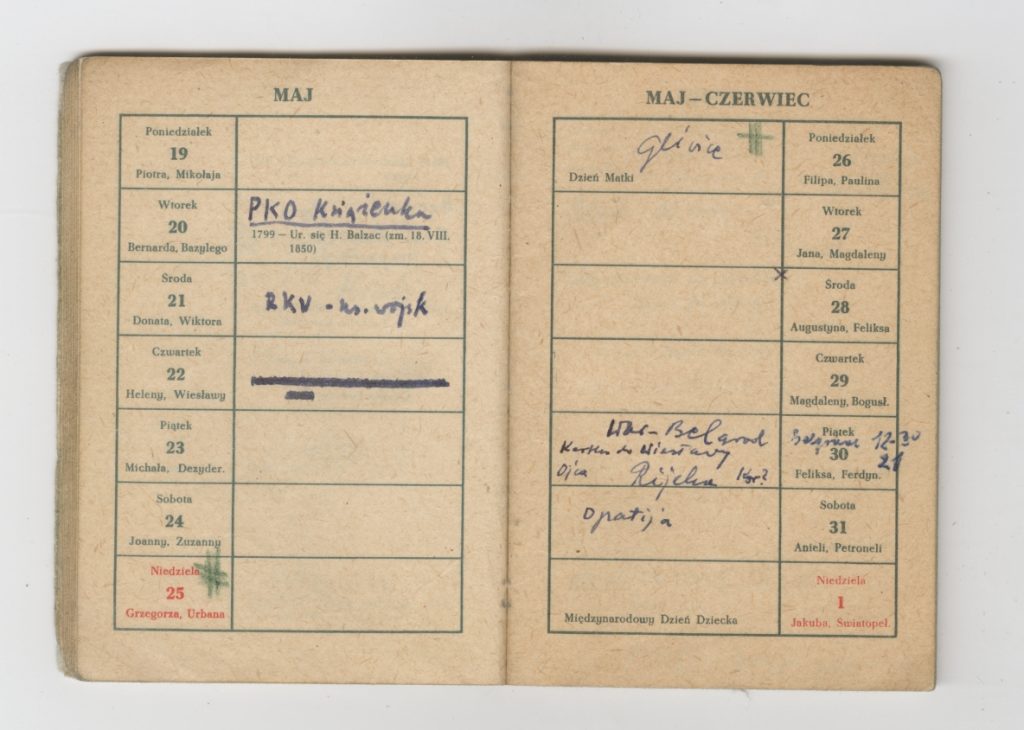 MAJ
Poniedziałek
19
Piotra, Mikołaja
Wtorek
20
Bernarda, Bazylego
PKO Książenka
1799 – Ur. się H. Balzac (zm. 18. VIII.
1850)
Środa
21
Donata, Wiktora
RKV - ns. wojsk
Czwartek
22
Heleny, Wiesławy
Piątek
23
Michała, Dezyder.
Sobota
24
Joanny, Zuzanny
Niedziela
25
Grzegorza, Urbana
MAJ – CZERWIEC
Gliwice
Dzień Matki
Poniedziałek
26
Filipa, Paulina
Wtorek
27
Jana, Magdaleny
x
Środa
28
Augustyna, Feliksa
Czwartek
29
Magdaleny, Bogusł.
War-Belgrad
Kartka do Wiesławy
Ojca Rijeka
Piątek
30
Feliksa, Ferdyn.
Belgrad 12-30
21
Opatija
Sobota
31
Anieli, Petroneli
Międzynarodowy Dzień Dziecka
Niedziela
1
Jakuba, Świątopeł.